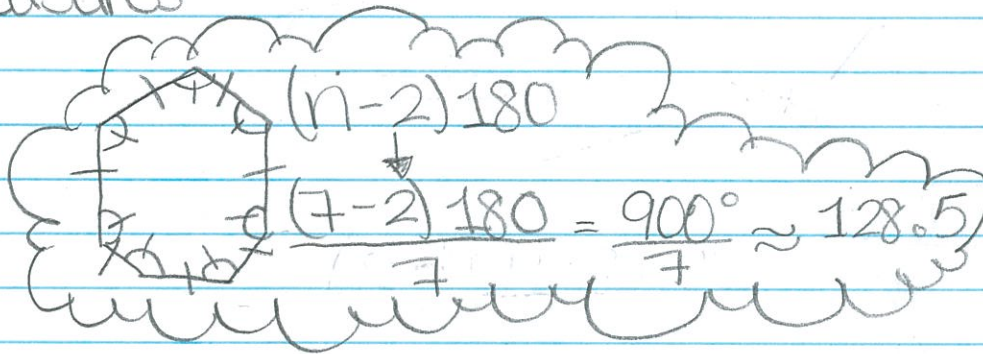 (n-2)180
(7-2)180 / 7 = 900° / 7 ≈ 128.5